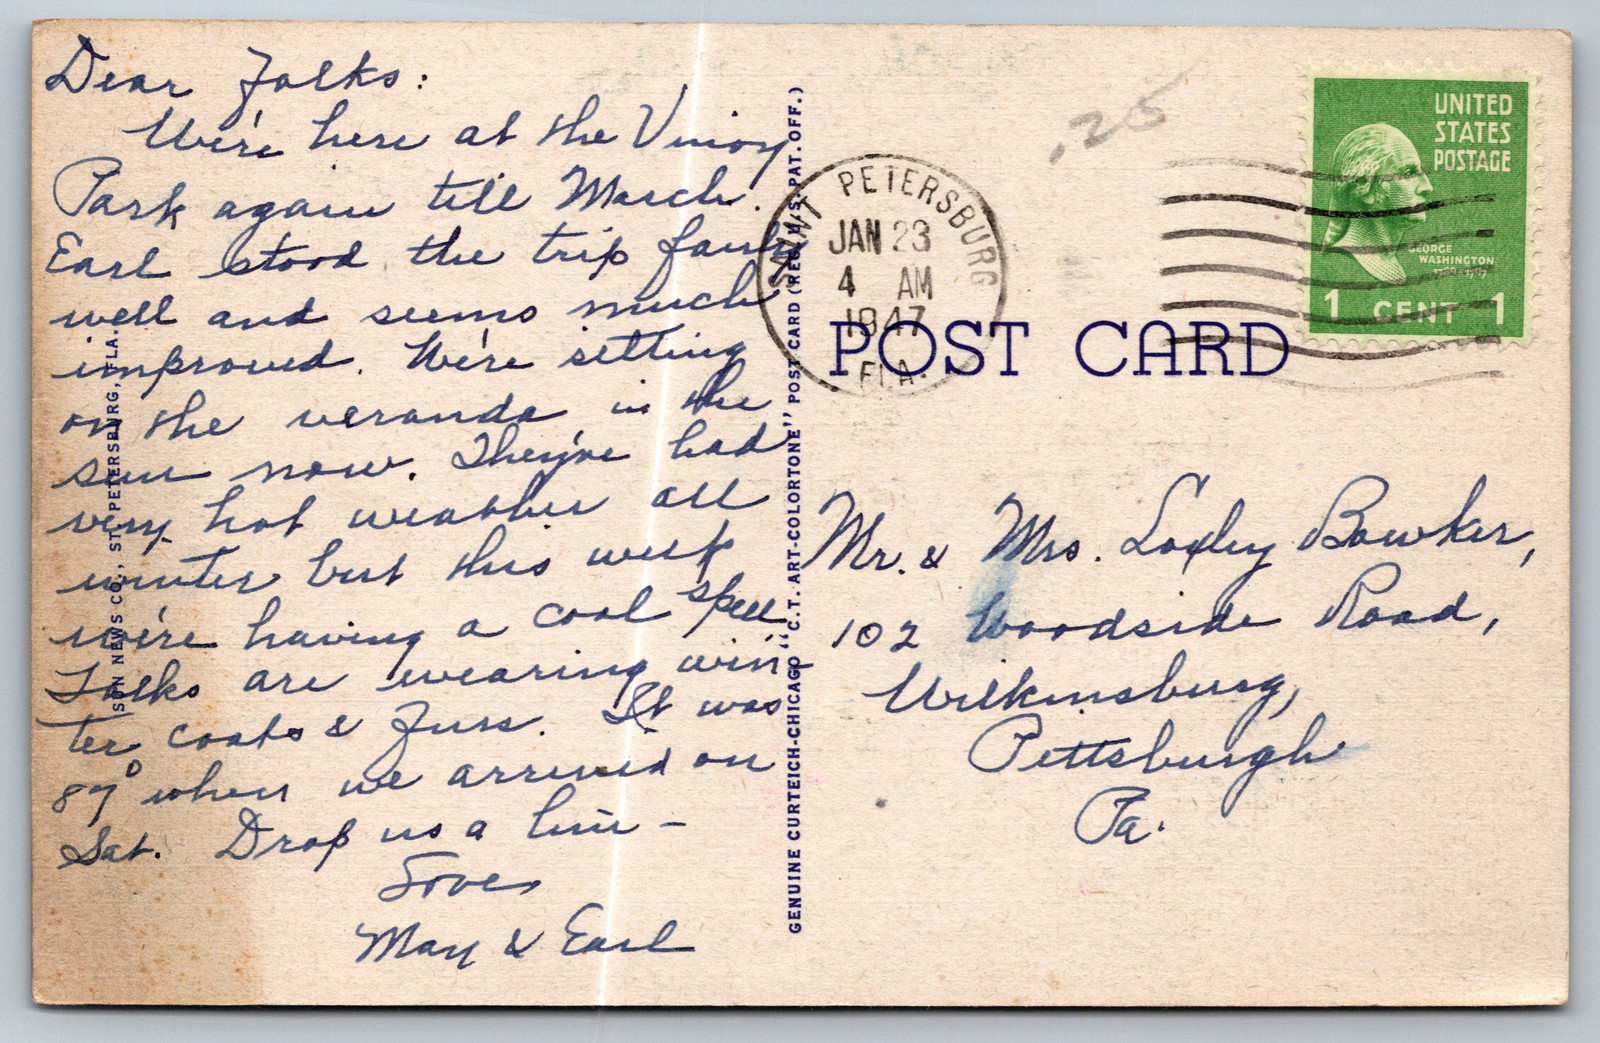 Dear Folks:
We're here at the Vinoy
Park again till March.
Earl stood the trip fairly
well and seems much
improved. We're sitting
on the veranda in the
sun now. They've had
very hot weather all
winter but this week
we're having a cool spell
Folks are wearing win-
ter coats & furs. It was
87° when we arrived on
Sat. Drop us a line –
Love,
May & Earl
SUN NEWS CO., ST. PETERSBURG, FLA.
GENUINE CURTEICH-CHICAGO "C.T. ART-COLORTONE" POST CARD (REG. U.S. PAT. OFF.)
.25
SAINT PETERSBURG
JAN 23
4 AM
1947
FLA.
POST CARD
UNITED
STATES
POSTAGE
GEORGE
WASHINGTON
1789-1797
1 CENT 1
Mr. & Mrs. Loxley Bowker,
102 Woodside Road,
Wilkinsburg,
Pittsburgh
Pa.